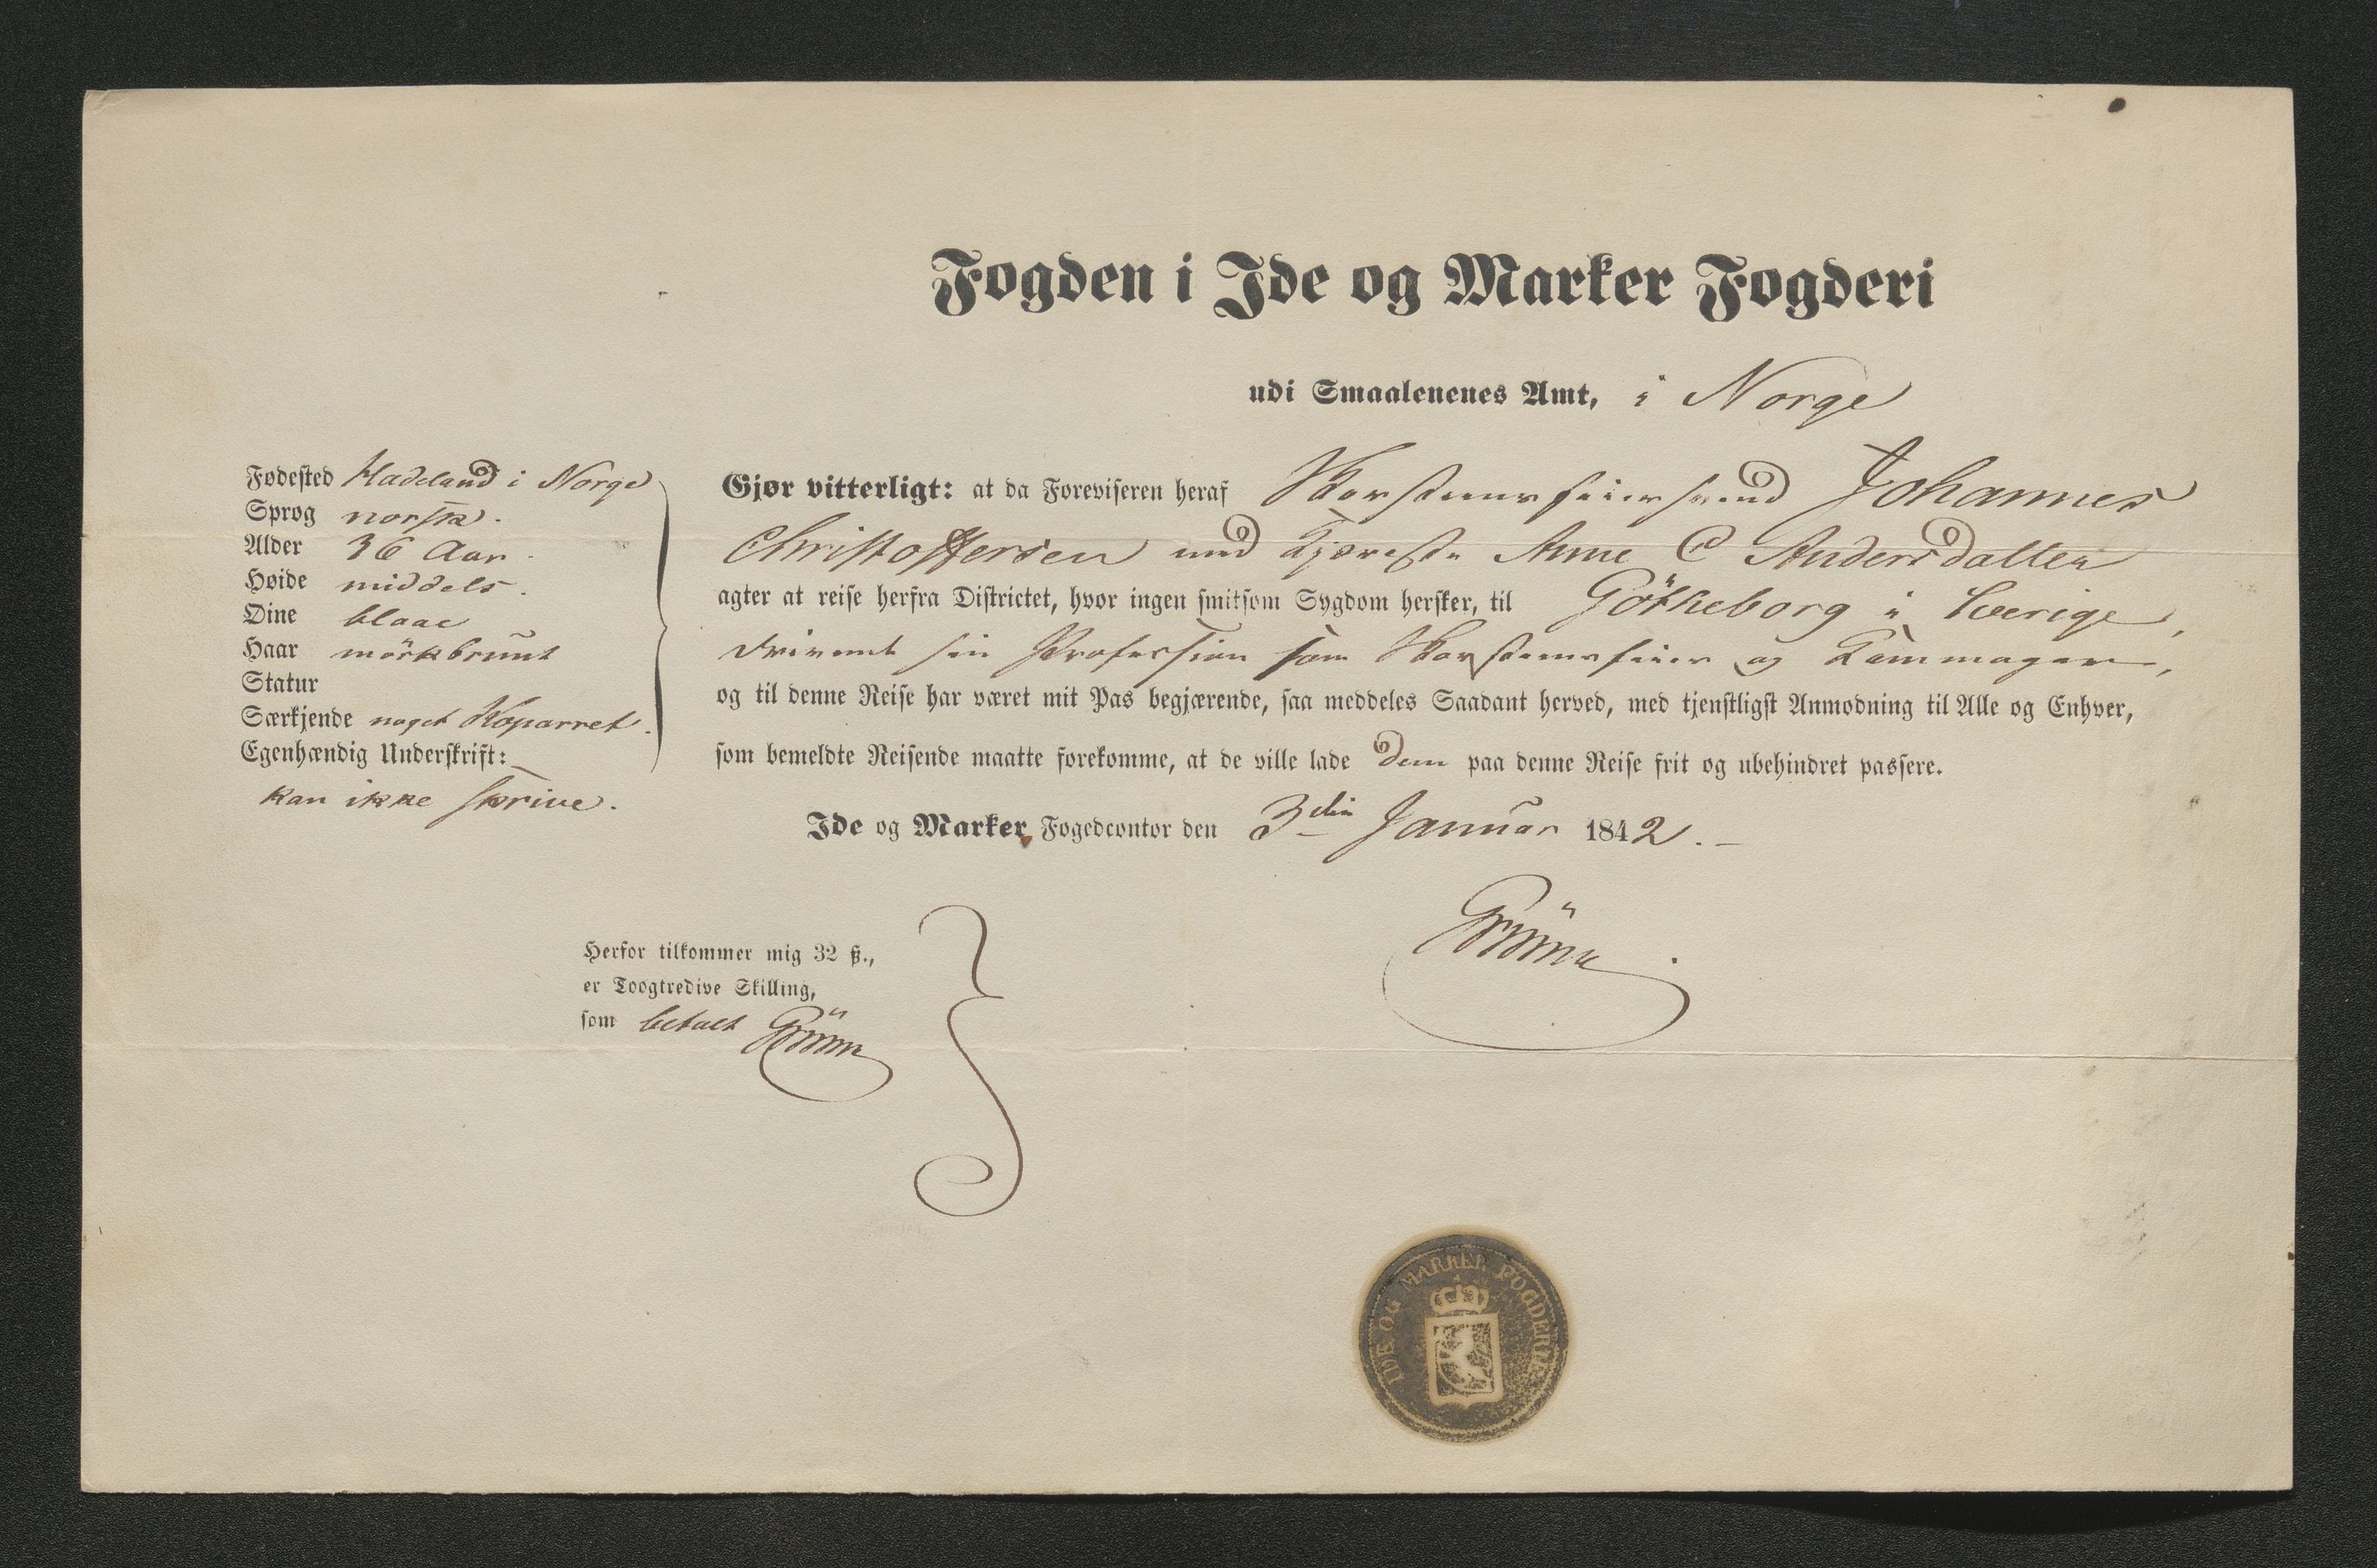 Fogden i Ide og Marker Fogderi
udi Smaalenenes Amt, i Norge
Fødested Hadeland i Norge
Sprog norsk.
Alder 36 Aar.
Høide middels.
Øine blaae
Haar mörkbrunt
Statur
Særkjende noget Koparret.
Egenhændig Underskrift:
kan ikke skrive.
Gjør vitterligt: at da Foreviseren heraf Skorsteensfeiersvend Johannes
Christoffersen med Kjæreste Anne C Andersdatter
agter at reise herfra Districtet, hvor ingen smitsom Sygdom hersker, til Götheborg i Sverige,
drivende sin Profession som Skorsteensfeier og Kammager,
og til denne Reise har været mit Pas begjærende, saa meddeles Saadant herved, med tjenstligst Anmodning til Alle og Enhver,
som bemeldte Reisende maatte forekomme, at de ville lade dem paa denne Reise frit og ubehindret passere.
Ide og Marker Fogedcontor den 3die Januar 1842.
Herfor tilkommer mig 32 ß.,
er Toogtredive Skilling,
som betalt
IDE OG MARKER FOGDERIE